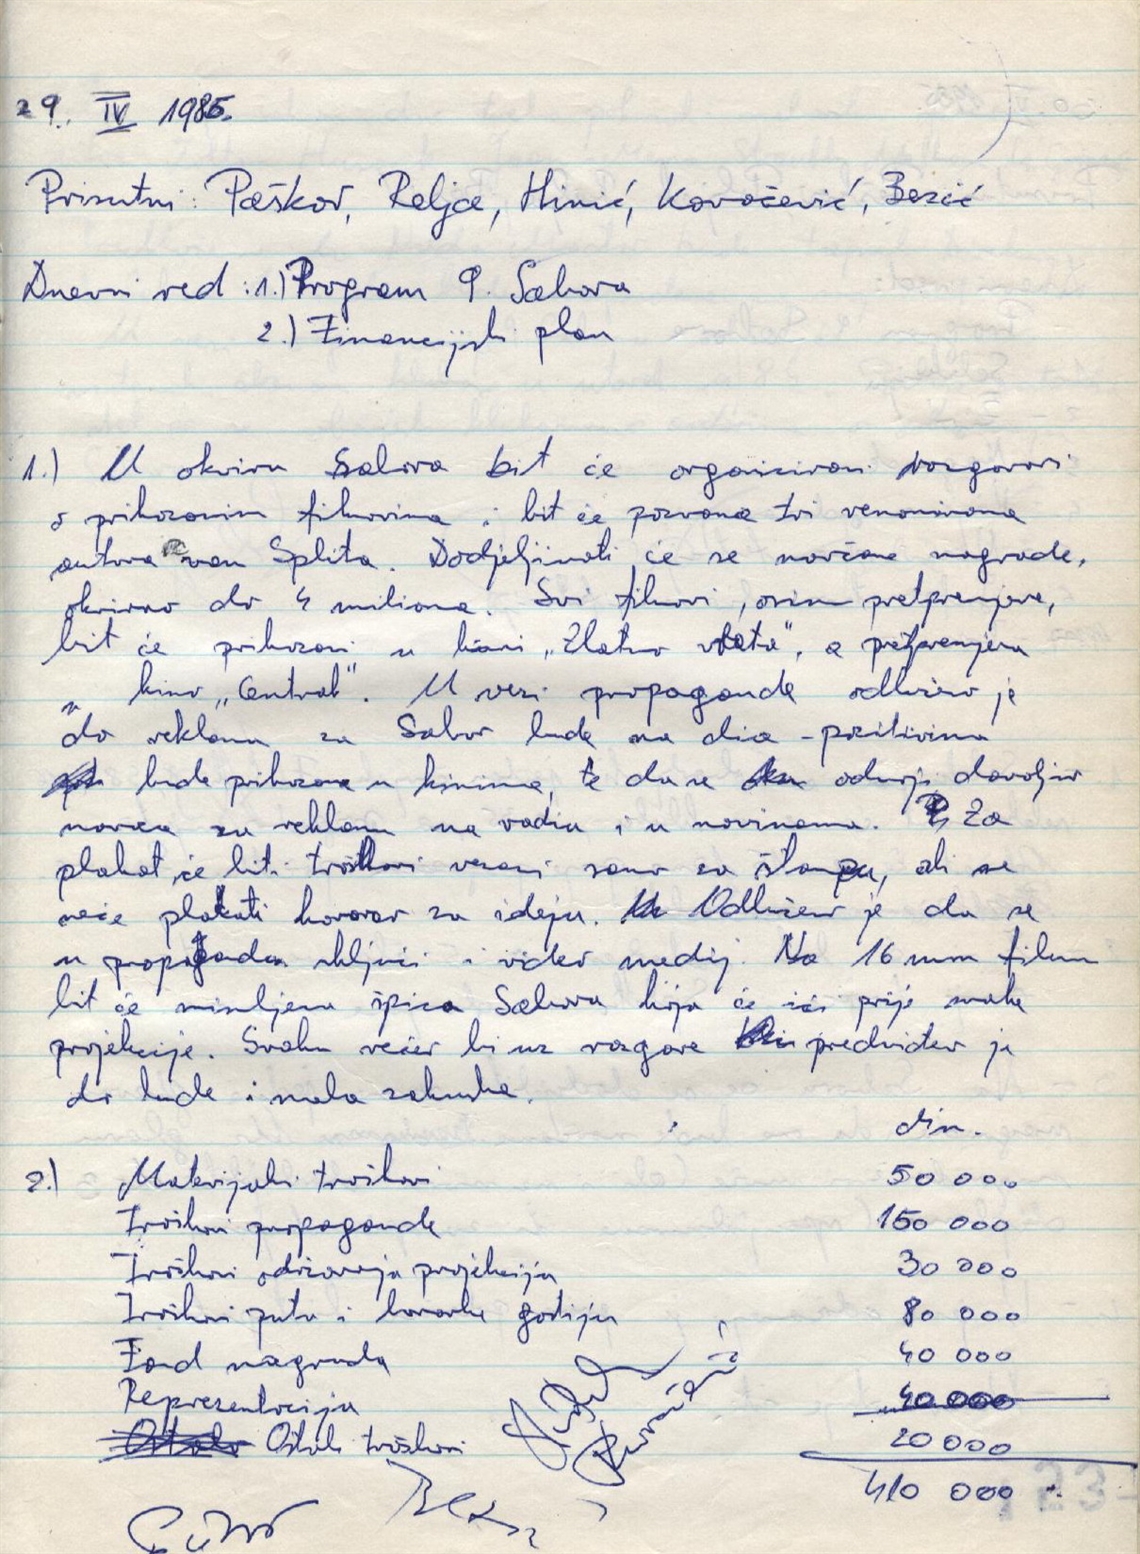 29. IV 1985.
Prisutni: Paškov, Relja, Hinić, Kovačević, Bezić
Dnevni red: 1.) Program 9. Sabora
2.) Financijski plan
1.) U okviru Sabora bit će organizirani razgovori
o prikazanim filmovima i bit će pozvana tri renomirana
autora van Splita. Dodjeljivati će se novčane nagrade,
okvirno do 4 miliona. Svi filmovi, osim pretpremjera,
bit će prikazani u kini „Zlatna vrata", a pretpremjera
u kino „Central". U vezi propagande odlučeno je
da reklama za Sabor bude na dia-pozitivima
bude prikazana u kinima, te da se odvoji dovoljno
novca za reklamu na radiu i u novinama. Za
plakat će biti troškovi vezani samo za štampu, ali se
neće plaćati honorar za ideju. Odlučeno je da se
u propagandu uključi i video medij. Na 16 mm filmu
bit će snimljena špica Sabora koja će ići prije svake
projekcije. Svaku večer bi uz razgovore predviđeno je
da bude i mala zakuska.
din.
2.) Materijalni troškovi 50 000
Troškovi propagande 150 000
Troškovi održavanja projekcija 30 000
Troškovi puta i boravka gostiju 80 000
Fond nagrada 40 000
Reprezentacija 40 000
Ostali troškovi 20 000
410 000